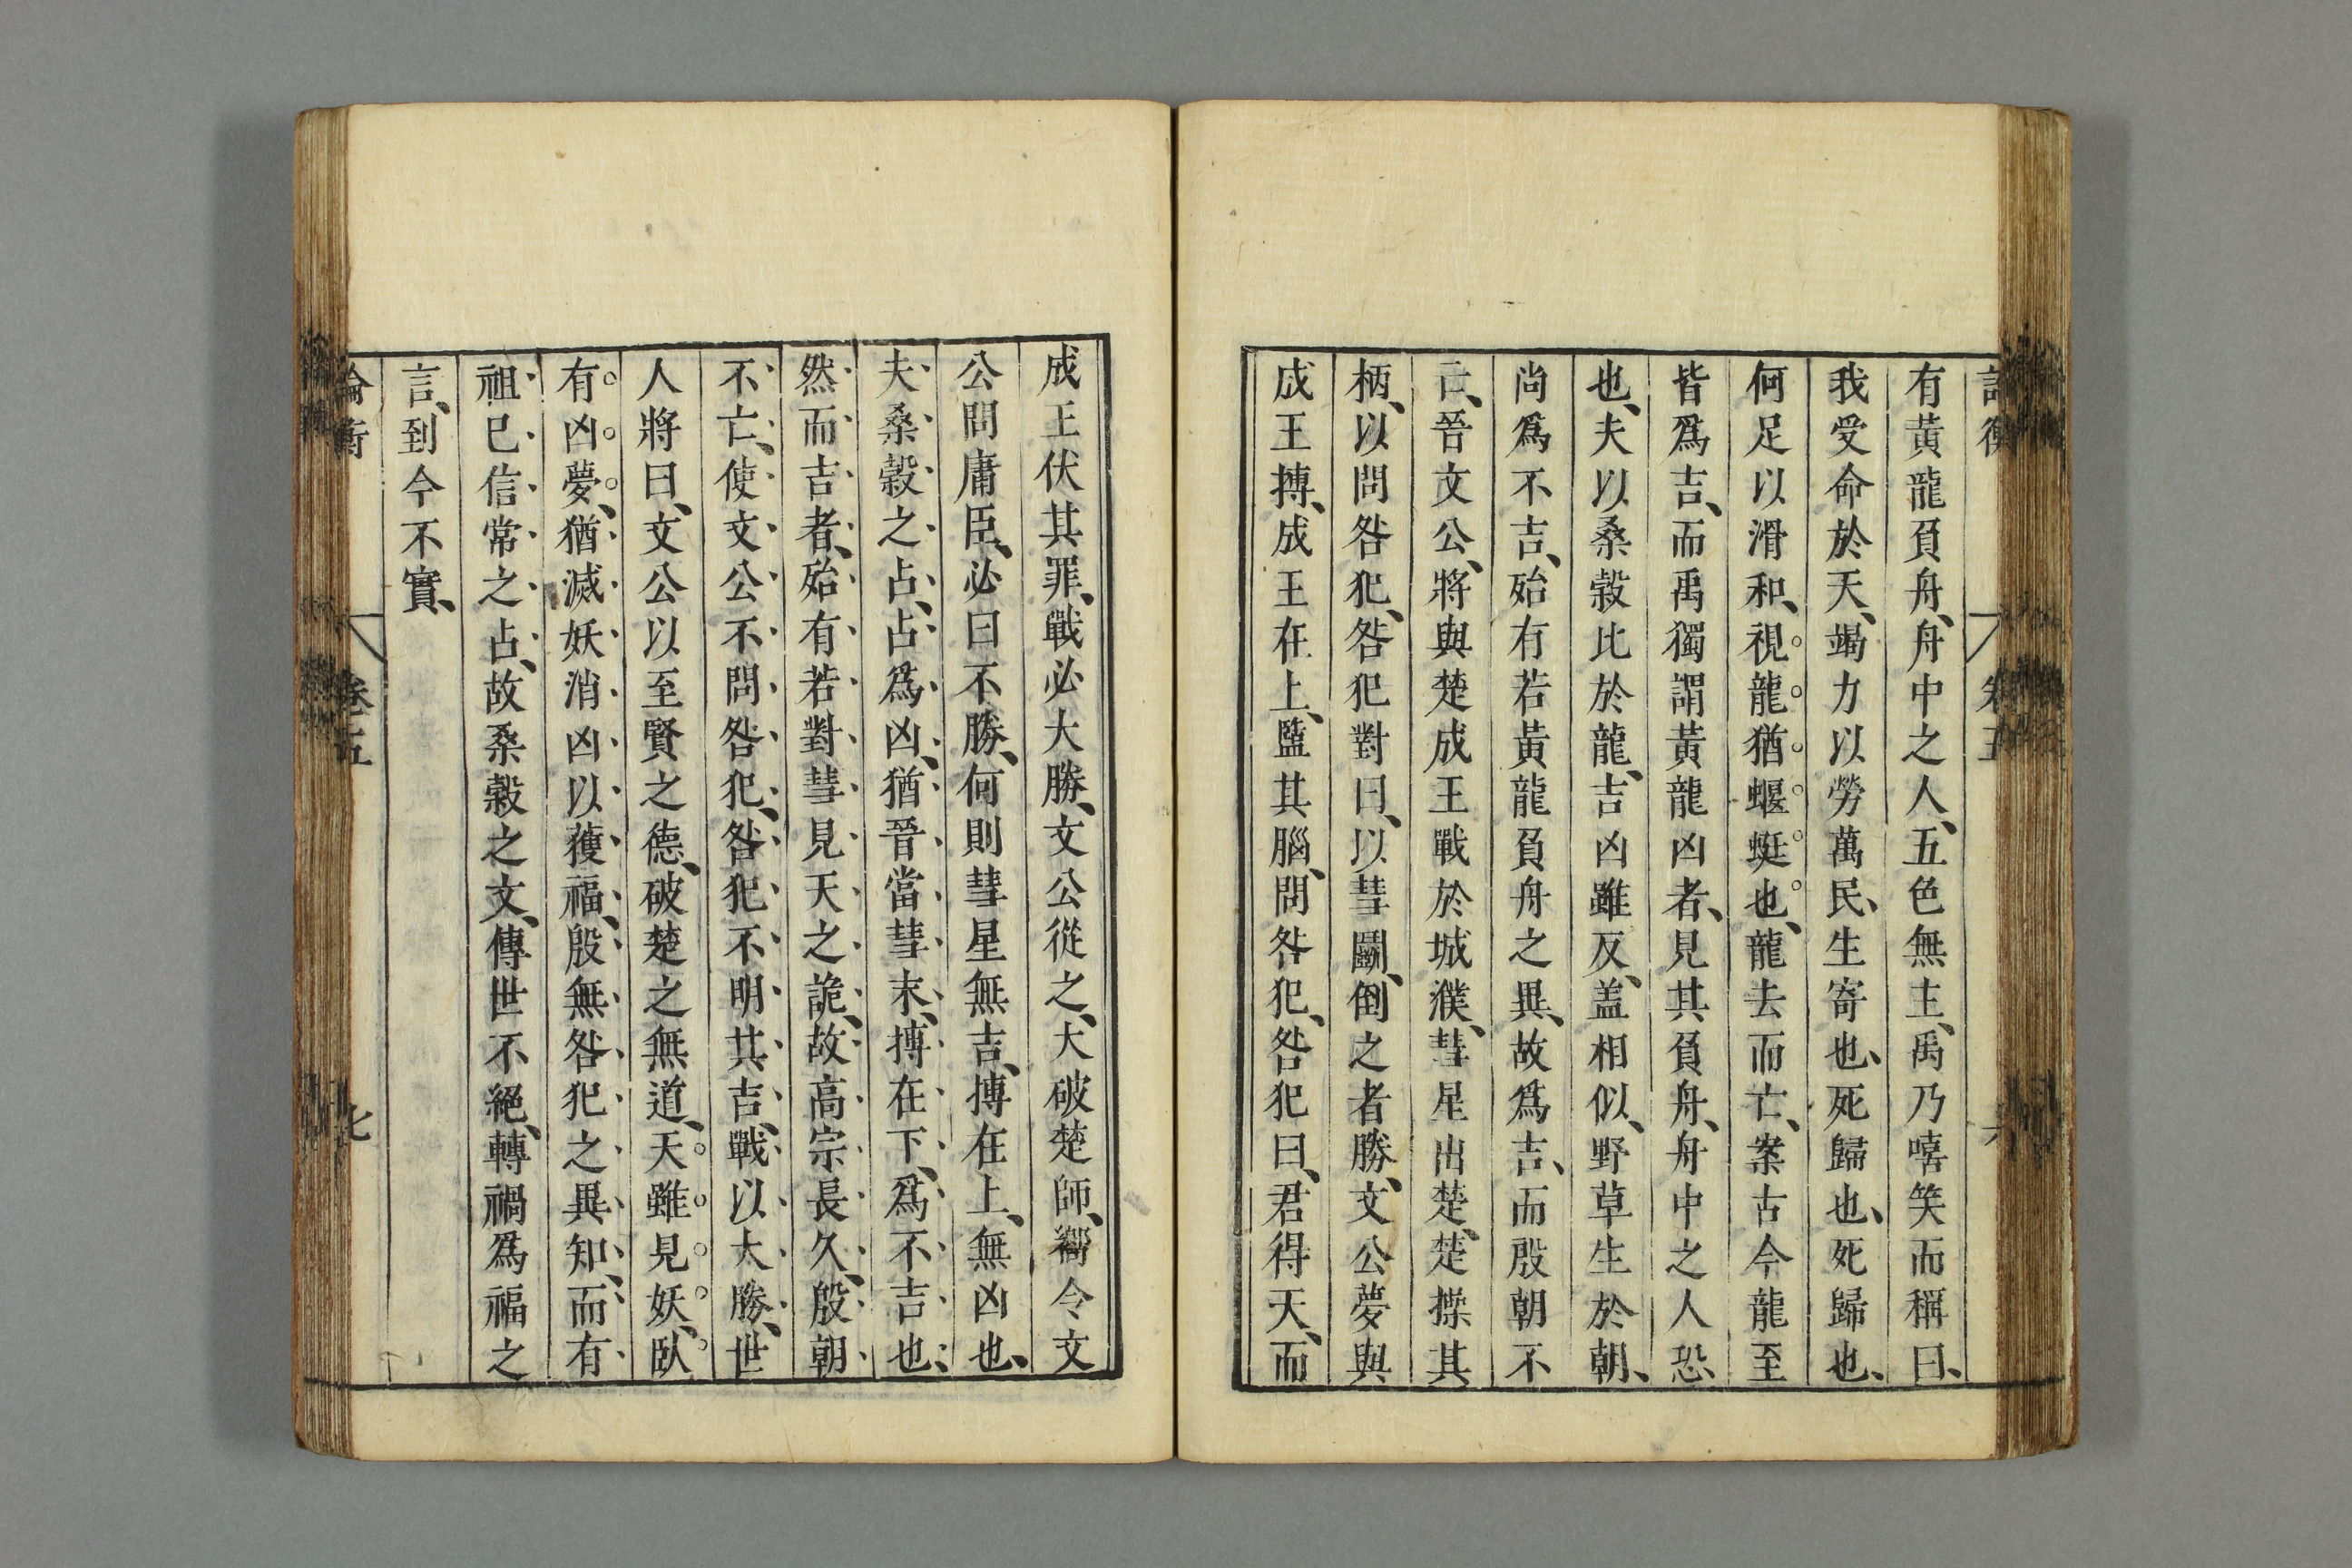 論衡 卷五
有黃龍負舟、舟中之人、五色無主、禹乃嘻笑而稱曰、
我受命於天、竭力以勞萬民、生寄也、死歸也、死歸也、
何足以滑和、視龍猶蝘蜓也、龍去而亡、案古今龍至
皆爲吉、而禹獨謂黃龍凶者、見其負舟、舟中之人恐
也、夫以桑榖比於龍、吉凶雖反、盖相似、野草生於朝、
尚爲不吉、殆有若黃龍負舟之異、故爲吉、而殷朝不
亡、晉文公、將與楚成王戰於城濮、彗星出楚、楚操其
柄、以問咎犯、咎犯對曰、以彗鬭、倒之者勝、文公夢與
成王搏、成王在上、盬其腦、問咎犯、咎犯曰、君得天、而
成王伏其罪、戰必大勝、文公從之、大破楚師、嚮令文
公問庸臣、必曰不勝、何則彗星無吉、搏在上、無凶也、
夫桑榖之占、占爲凶、猶晉當彗末、搏在下、爲不吉也、
然而吉者、殆有若對彗見天之詭、故高宗長久、殷朝
不亡、使文公不問咎犯、咎犯不明其吉、戰以大勝、世
人將曰、文公以至賢之德、破楚之無道、天雖見妖、臥
有凶夢、猶滅妖消凶以獲福、殷無咎犯之異知、而有
祖巳信常之占、故桑榖之文、傳世不絕、轉禍爲福之
言、到今不實、
論衡 卷五 七